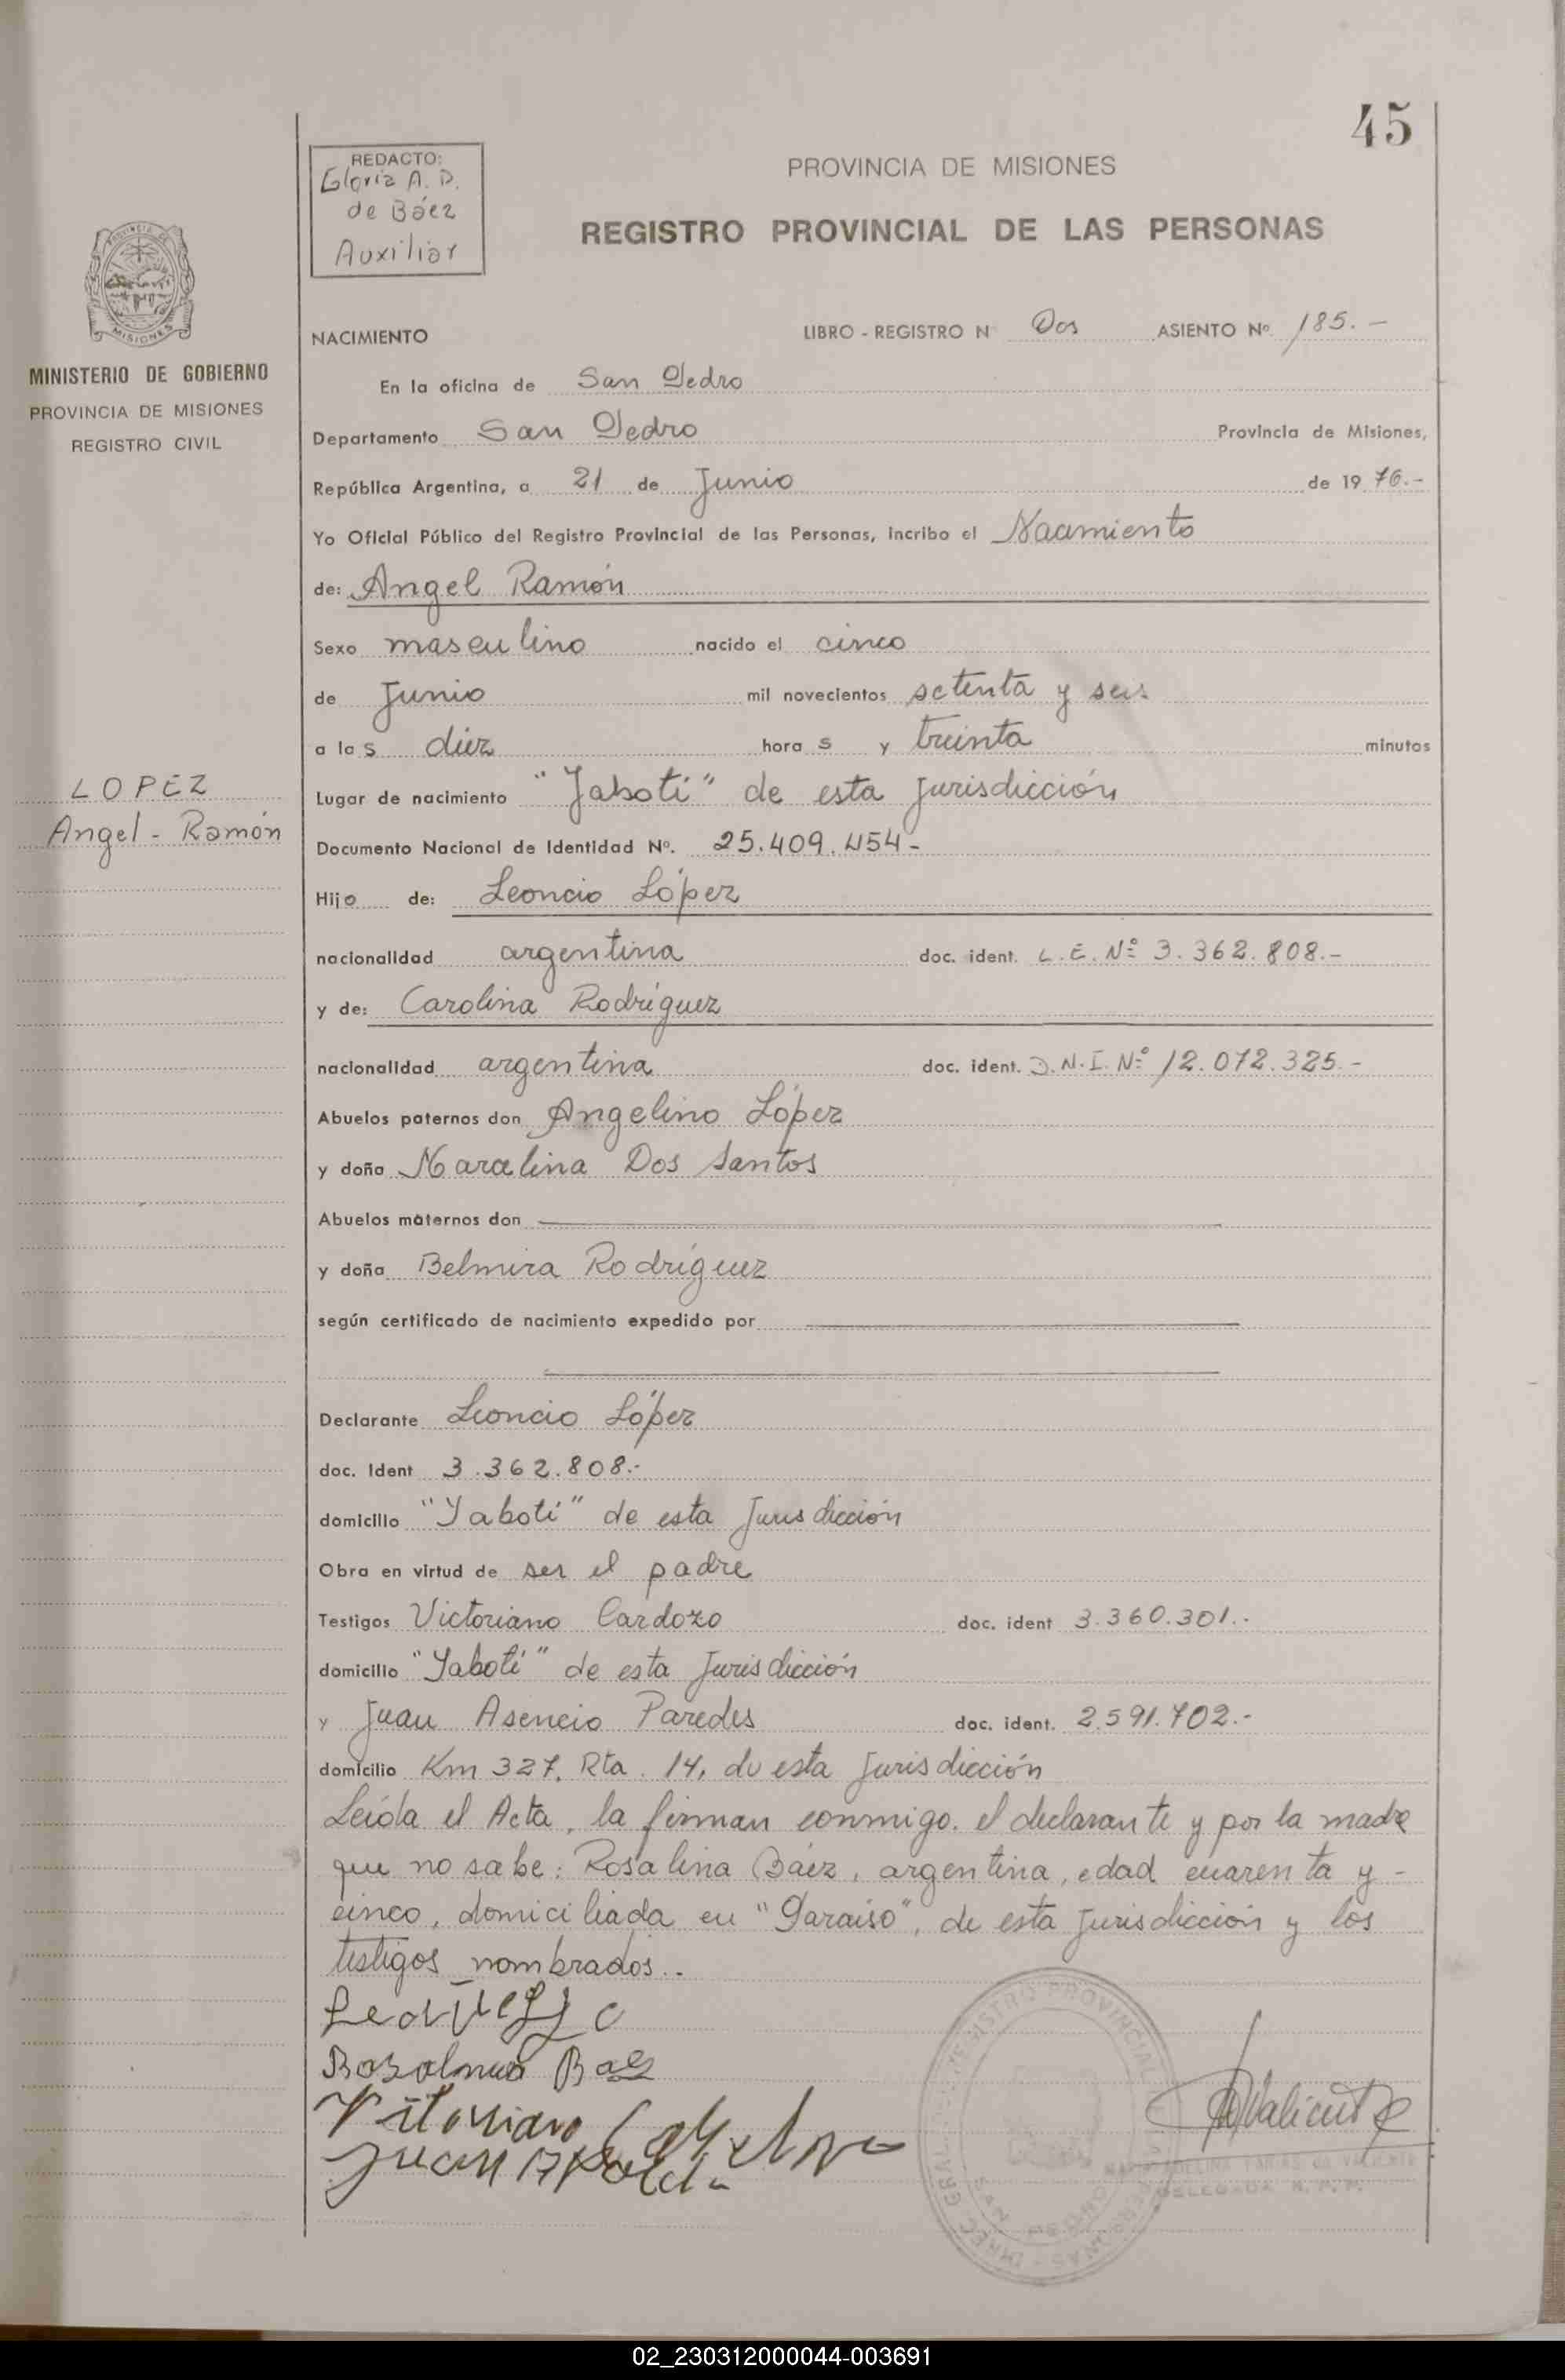 45
REDACTO:
Gloria A. D.
de Báez
Auxiliar
PROVINCIA DE MISIONES
REGISTRO PROVINCIAL DE LAS PERSONAS
MISIONES
MINISTERIO DE GOBIERNO
PROVINCIA DE MISIONES
REGISTRO CIVIL
LOPEZ
Angel - Ramón
NACIMIENTO LIBRO - REGISTRO N Dos ASIENTO Nº 185.-
En la oficina de San Pedro
Departamento San Pedro Provincia de Misiones,
República Argentina, a 21 de Junio de 19 76.-
Yo Oficial Público del Registro Provincial de las Personas, incribo el Nacimiento
de: Angel Ramón
Sexo masculino nacido el cinco
de Junio mil novecientos setenta y seis
a la s diez hora s y treinta minutos
Lugar de nacimiento "Yabotí" de esta Jurisdicción
Documento Nacional de Identidad Nº. 25.409.454-
Hijo de: Leoncio López
nacionalidad argentina doc. ident. L.E. Nº 3.362.808.-
y de: Carolina Rodríguez
nacionalidad argentina doc. ident. D.N.I. Nº 12.072.325.-
Abuelos paternos don Angelino López
y doña Marcelina Dos Santos
Abuelos maternos don
y doña Belmira Rodríguez
según certificado de nacimiento expedido por
Declarante Leoncio López
doc. Ident 3.362.808.-
domicilio "Yabotí" de esta Jurisdicción
Obra en virtud de ser el padre
Testigos Victoriano Cardozo doc. ident 3.360.301.-
domicilio "Yabotí" de esta Jurisdicción
y Juan Asencio Paredes doc. ident. 2.591.702.-
domicilio Km 327. Rta. 14, de esta Jurisdicción
Leída el Acta, la firman conmigo. el declarante y por la madre
que no sabe: Rosalina Báez, argentina, edad cuarenta y -
cinco, domiciliada en "Paraíso", de esta Jurisdicción y los
testigos nombrados.-
Rosalina Baez
Vitoriano
Juan
REGISTRO PROVINCIAL
SAN PEDRO
DELEGADA R.P.P.
02_230312000044-003691